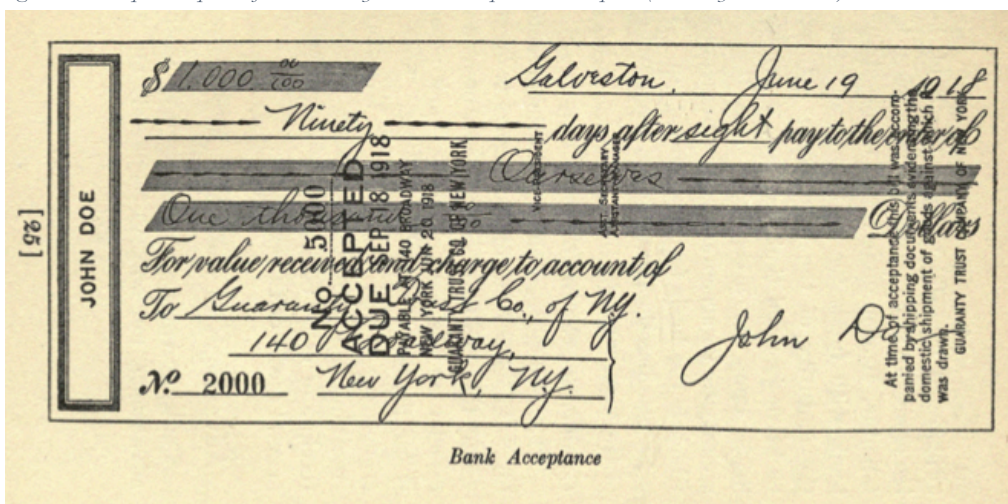 $ 1,000 00/100 Galveston, June 19 1918
Ninety days after sight pay to the order of
Ourselves
One thousand Dollars
For value received and charge to account of
To Guaranty Trust Co., of N.Y.
140 Broadway,
New York, N.Y.
No. 2000
John Doe
JOHN DOE
[25]
No. 5000
ACCEPTED
DUE SEP 18 1918
PAYABLE AT 140 BROADWAY
NEW YORK JUN 20 1918
GUARANTY TRUST CO. OF NEW YORK
VICE PRESIDENT
ASST. SECRETARY
At time of acceptance this bill was accom-
panied by shipping documents evidencing the
domestic shipment of goods against which it
was drawn.
GUARANTY TRUST COMPANY OF NEW YORK
Bank Acceptance